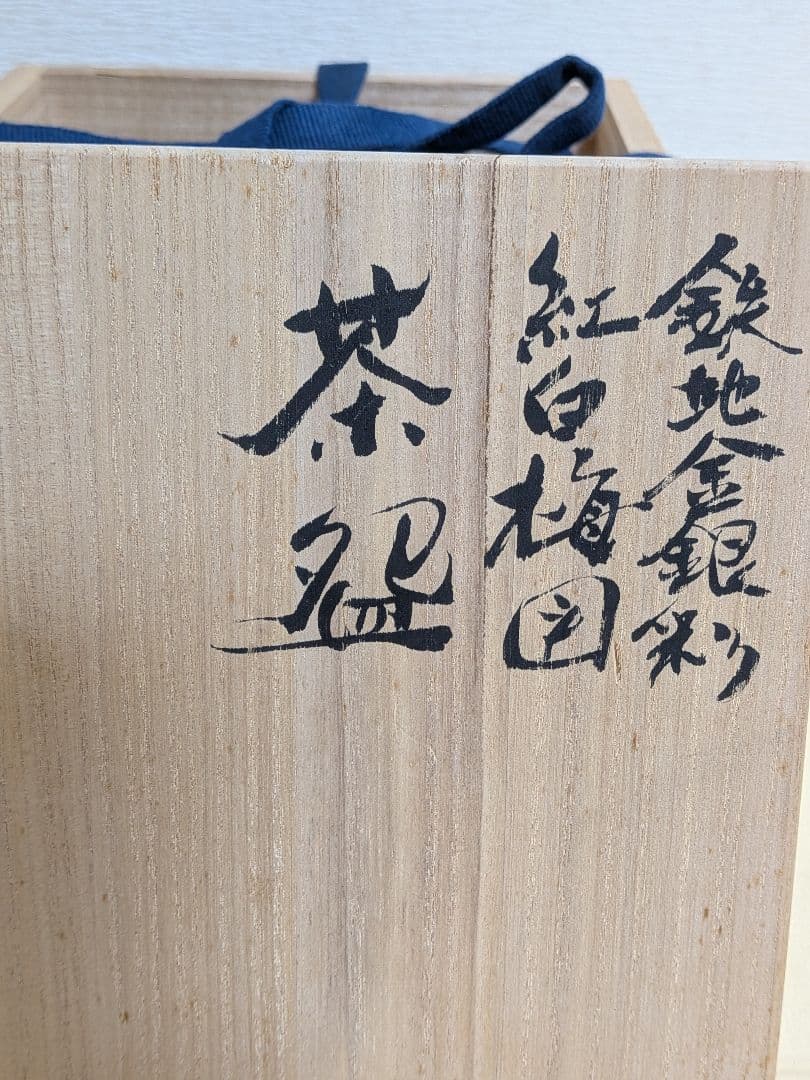 鉄地金銀彩
紅白梅図
茶盌